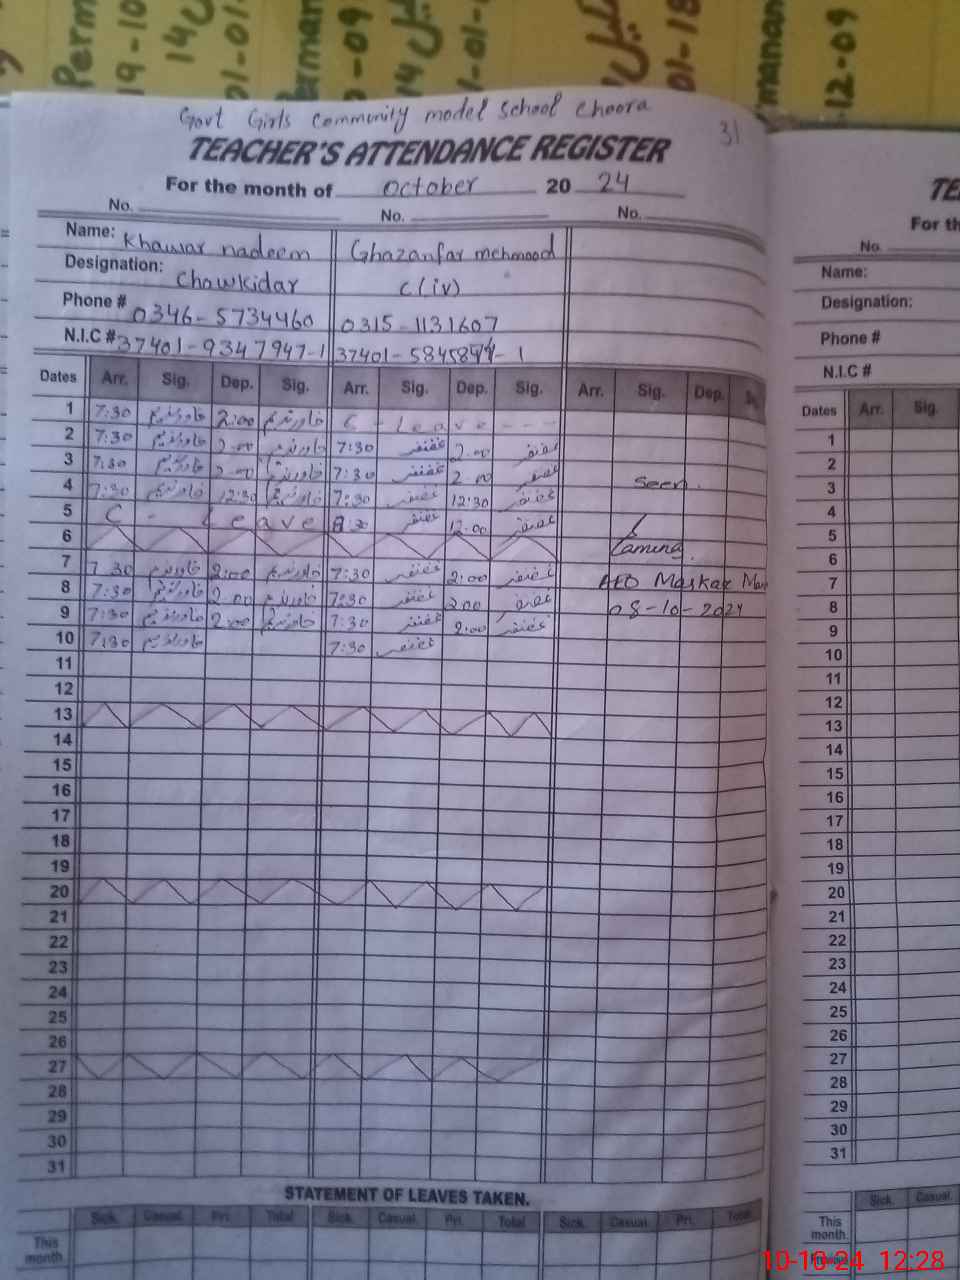 Perm
19-10
14
01-01
Perman
-09
01-18
manan
12-09
Govt Girls Community model school Choora
31
TEACHER'S ATTENDANCE REGISTER
For the month of October 20 24
No. No. No.
Name: Khawar nadeem Ghazanfar mehmood
Designation: Chowkidar C(iv)
Phone # 0346-5734460 0315-1131607
N.I.C # 37401-9347947-1 37401-
Dates Arr. Sig. Dep. Sig. Arr. Sig. Dep. Sig. Arr. Sig. Dep.
1 7:30 خاورندیم 2:00 خاورندیم C - Leave - - -
2 7:30 خاورندیم 2:00 خاورندیم 7:30 غضنفر 2:00 غضنفر
3 7:30 خاورندیم 2:00 خاورندیم 7:30 غضنفر 2:00 غضنفر
4 7:30 خاورندیم 12:30 خاورندیم 7:30 غضنفر 12:30 غضنفر Seen.
5 C - Leave 8:30 غضنفر 12:00 غضنفر
6
7 7:30 خاورندیم 2:00 خاورندیم 7:30 غضنفر 2:00 غضنفر AEO
8 7:30 خاورندیم 2:00 خاورندیم 7:30 غضنفر 2:00 غضنفر 08-10-2024
9 7:30 خاورندیم 2:00 خاورندیم 7:30 غضنفر 2:00 غضنفر
10 7:30 خاورندیم 7:30 غضنفر
11
12
13
14
15
16
17
18
19
20
21
22
23
24
25
26
27
28
29
30
31
STATEMENT OF LEAVES TAKEN.
Sick. Casual. Pri. Total Sick. Casual. Pri. Total Sick. Casual. Pri. Total
This month.
TE
For th
No.
Name:
Designation:
Phone #
N.I.C #
Dates Arr. Sig.
1
2
3
4
5
6
7
8
9
10
11
12
13
14
15
16
17
18
19
20
21
22
23
24
25
26
27
28
29
30
31
Sick. Casual.
This month.
10-10-24 12:28